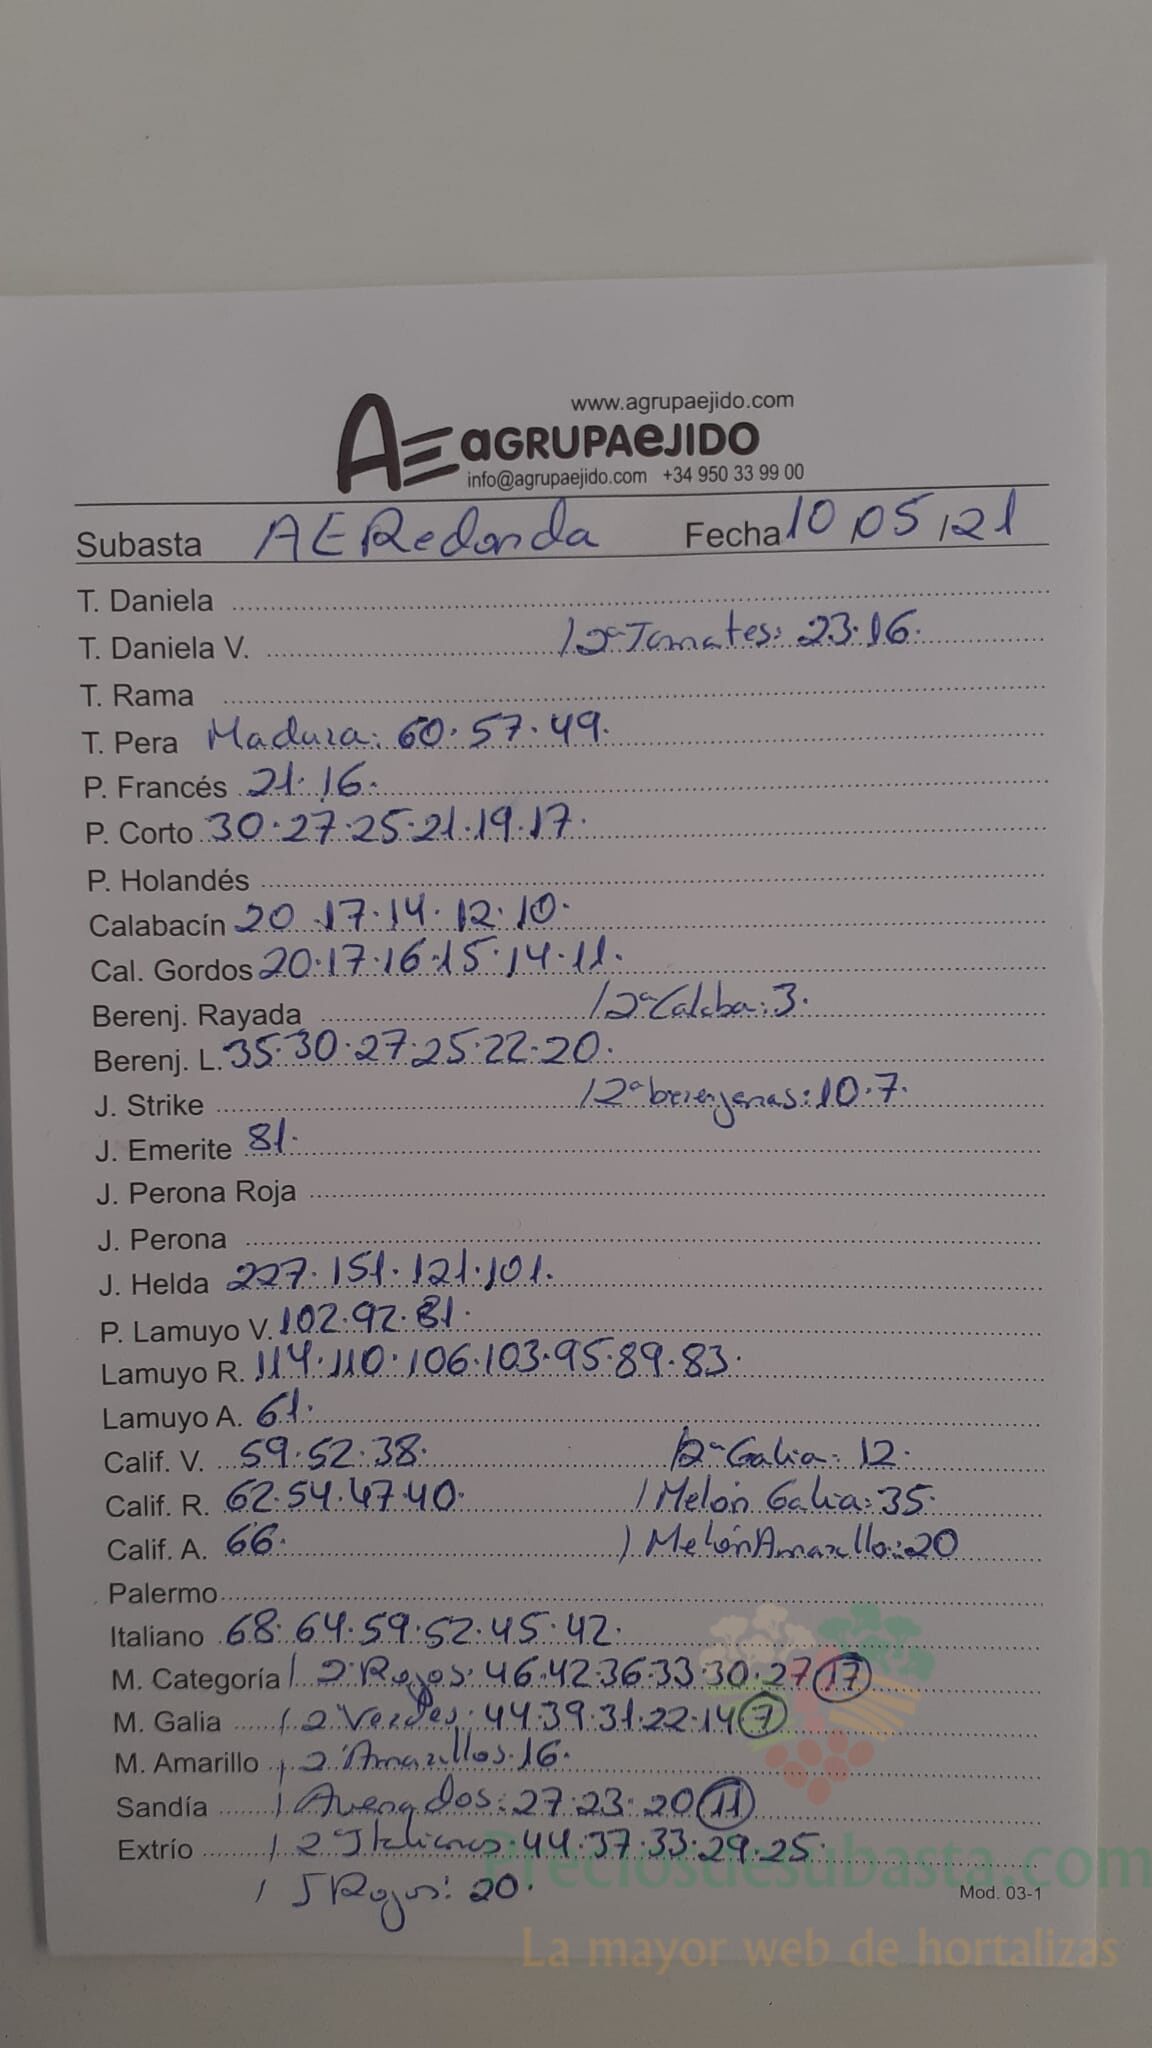 www.agrupaejido.com
AE aGRUPAeJIDO
info@agrupaejido.com +34 950 33 99 00
Subasta AERedonda Fecha 10,05,21
T. Daniela
T. Daniela V. / 2ª Tomates: 23.16.
T. Rama
T. Pera Madura: 60.57.49.
P. Francés 21.16.
P. Corto 30.27.25.21.19.17.
P. Holandés
Calabacín 20.17.14.12.10.
Cal. Gordos 20.17.16.15.14.11.
Berenj. Rayada / 2ª Calaba: 3.
Berenj. L. 35.30.27.25.22.20.
J. Strike / 2ª berenjenas: 10.7.
J. Emerite 81.
J. Perona Roja
J. Perona
J. Helda 227.151.121.101.
P. Lamuyo V. 102.92.81.
Lamuyo R. 114.110.106.103.95.89.83.
Lamuyo A. 61.
Calif. V. 59.52.38. / 2ª Galia: 12.
Calif. R. 62.54.47.40. / Melón Galia: 35.
Calif. A. 66. / Melón Amarillo: 20
Palermo
Italiano 68.64.59.52.45.42.
M. Categoría / 2ª Rojos: 46.42.36.33.30.27 17
M. Galia / 2 Verdes: 44.39.31.22.14 7
M. Amarillo / 2ª Amarillos.16.
Sandía / Avengdos: 27.23.20 11
Extrío / 2ª Italianos.44.37.33.29.25.
/ 5 Rojos: 20.
Mod. 03-1
Preciosdesubasta.com
La mayor web de hortalizas